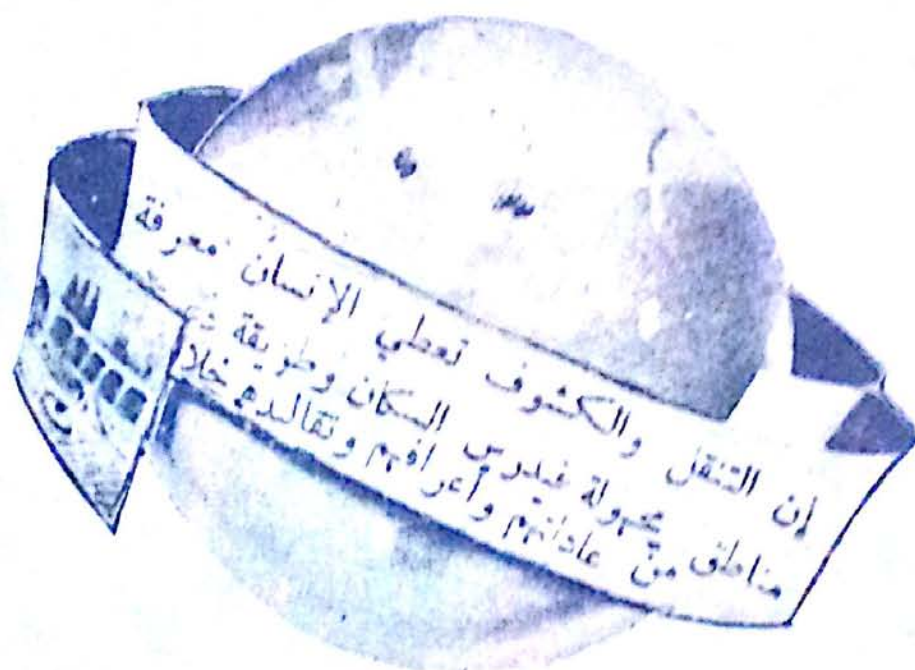 إن التنقل والكشوف تعطي الإنسان معرفة
مناطق مجهولة فيدرس السكان وطريقة
من عاداتهم وأعرافهم وتقالدهم